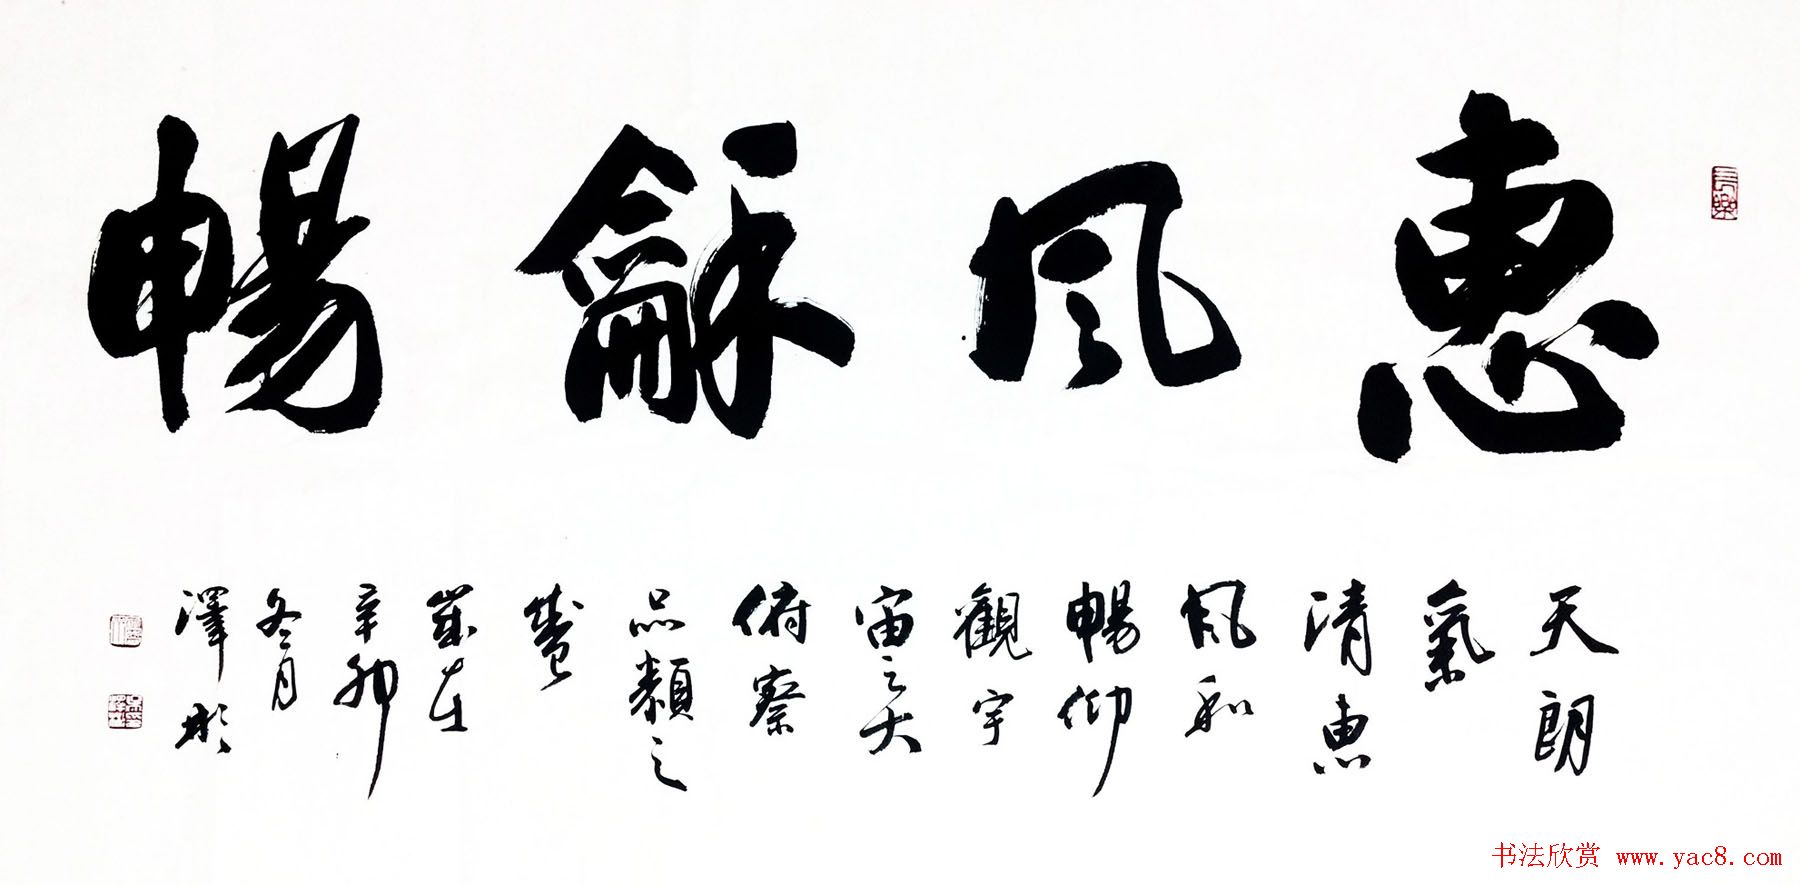 惠風龢暢
天朗
氣
清惠
風和
暢仰
觀宇
宙之大
俯察
品類之
盛
歲在
辛卯
冬月
澤彬
长樂
书法欣赏 www.yac8.com